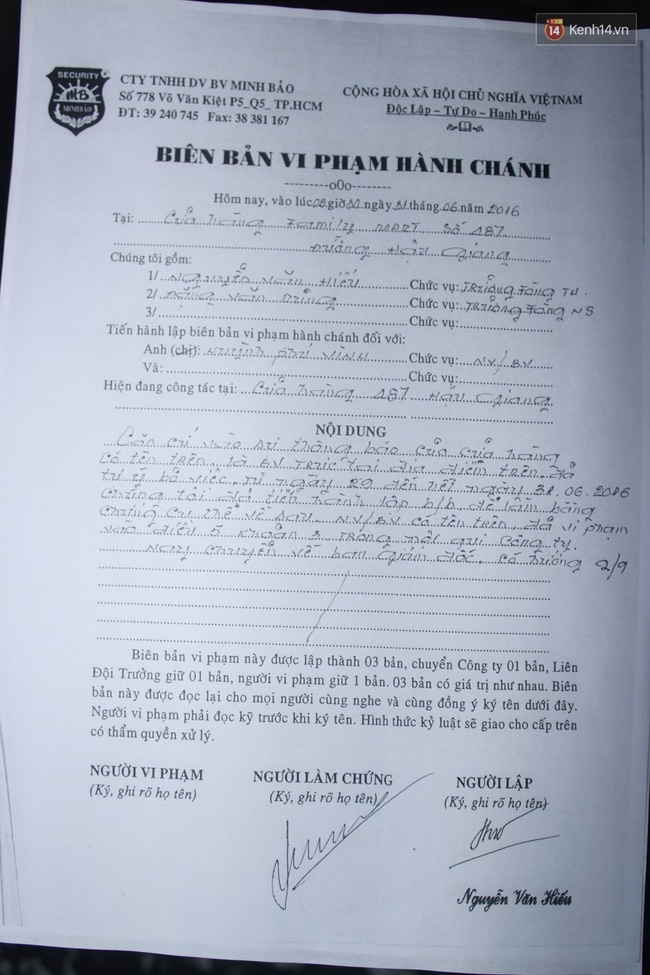 14 Kenh14.vn
SECURITY
MB
MINH BẢO
CTY TNHH DV BV MINH BẢO
Số 778 Võ Văn Kiệt P5_Q5_ TP.HCM
ĐT: 39 240 745 Fax: 38 381 167
CỘNG HÒA XÃ HỘI CHỦ NGHĨA VIỆTNAM
Độc Lập – Tự Do – Hạnh Phúc
BIÊN BẢN VI PHẠM HÀNH CHÁNH
---------o0o--------
Hôm nay, vào lúc 08 giờ 30 ngày 31 tháng 06 năm 2016
Tại: Cửa hàng Family MART Số 187
Đường Hậu Giang
Chúng tôi gồm:
1/ Nguyễn Văn Hiếu Chức vụ: TRưởng Tầng TU
2/ Đặng Văn Chức vụ: TRưởng Tầng NS
3/ Chức vụ:
Tiến hành lập biên bản vi phạm hành chánh đối với:
Anh (chị): Huỳnh Phú VINH Chức vụ: NV/BV
Và: Chức vụ:
Hiện đang công tác tại: Cửa hàng 187 Hậu Giang
NỘI DUNG
Căn cứ vào sự thông báo của cửa hàng
có tên trên, là BV TRực tại địa điểm trên, đã
tự ý bỏ việc, từ ngày 29 đến hết ngày 31.06.2016
Chúng tôi đã tiến hành lập b/b để làm bằng
Chứng cụ thể về sau. NV/BV có tên trên, đã vi phạm
vào điều 5 khoản 3 trong nội qui công ty.
Nay chuyển về ban Giám đốc, có hướng g/q
Biên bản vi phạm này được lập thành 03 bản, chuyển Công ty 01 bản, Liên
Đội Trưởng giữ 01 bản, người vi phạm giữ 1 bản. 03 bản có giá trị như nhau. Biên
bản này được đọc lại cho mọi người cùng nghe và cùng đồng ý ký tên dưới đây.
Người vi phạm phải đọc kỹ trước khi ký tên. Hình thức kỷ luật sẽ giao cho cấp trên
có thẩm quyền xử lý.
NGƯỜI VI PHẠM NGƯỜI LÀM CHỨNG NGƯỜI LẬP
(Ký, ghi rõ họ tên) (Ký, ghi rõ họ tên) (Ký, ghi rõ họ tên)
Nguyễn Văn Hiếu